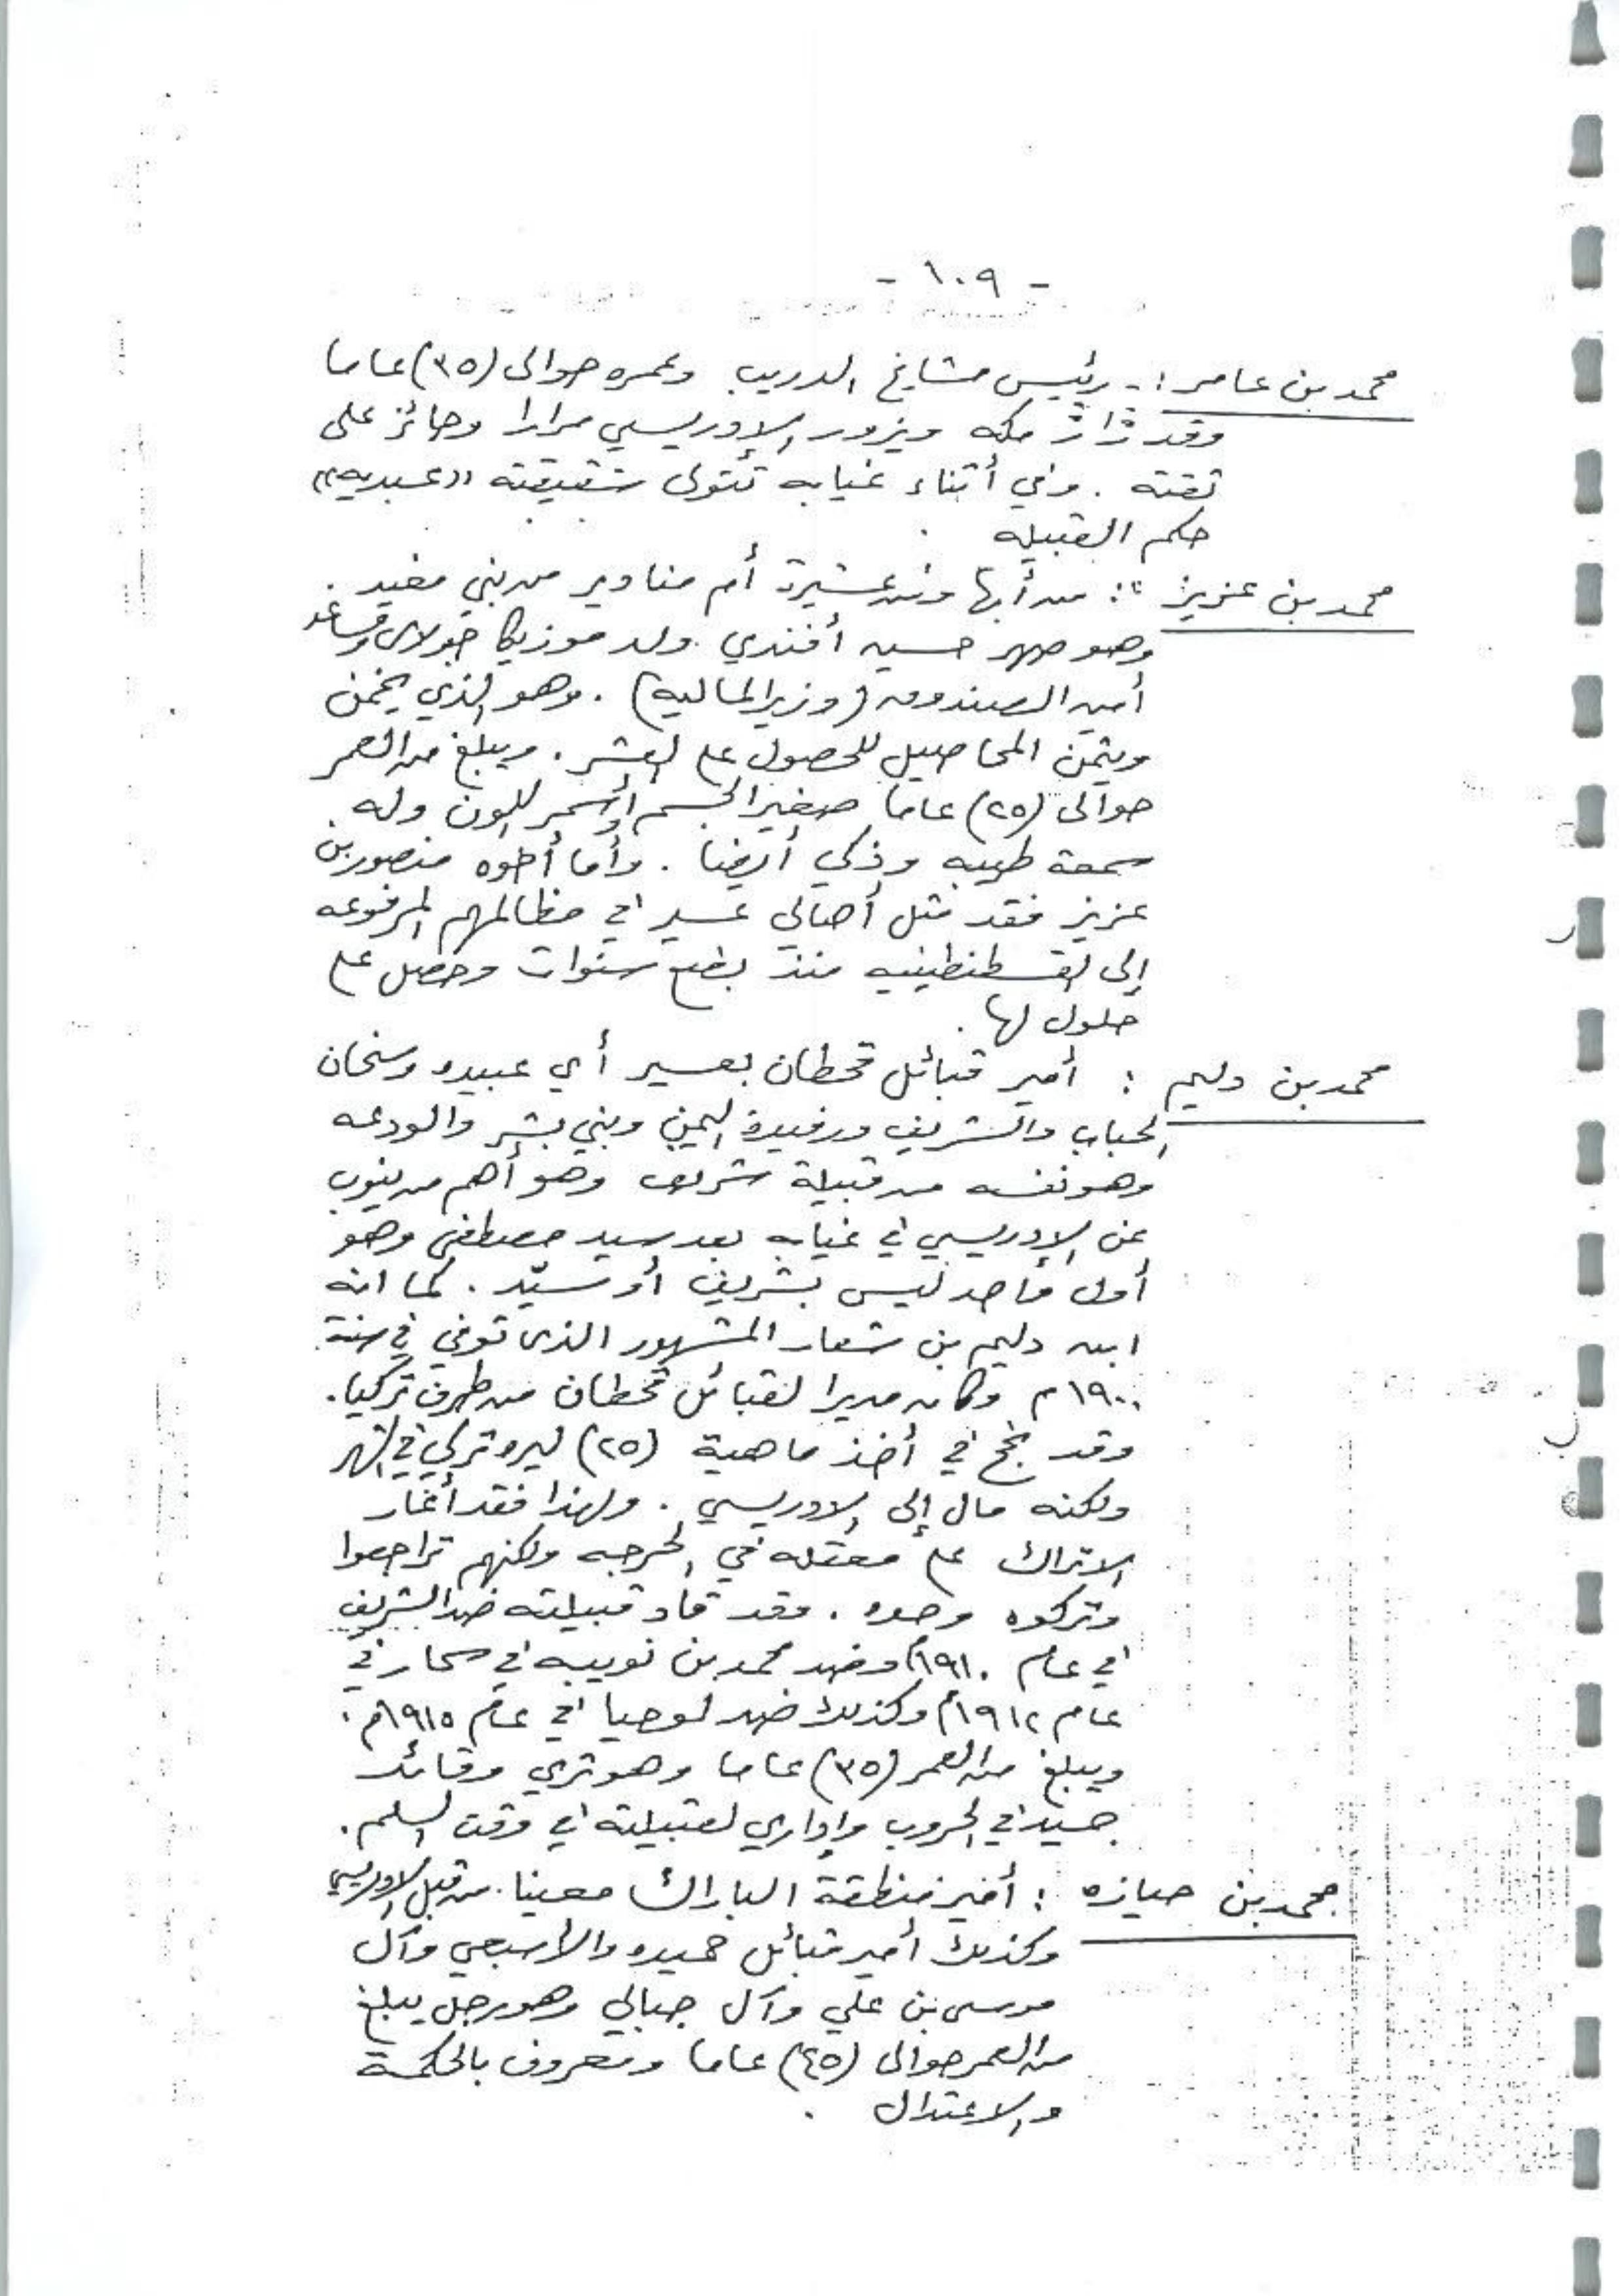 - ١٠٩ -
محمد بن عامر :- رئيس مشايخ الدريب وعمره حوالى (٣٥) عاما
وقد زار مكه ويزور الإدريسي مرارا وحائز على
ثقته . وفي أثناء غيابه تتولى شقيقته «عبديه»
حكم القبيله .
محمد بن عزيز : من أبها ومن عشيرة أم مناوير من بني مغيد .
وهو صهر حسين أفندي ولد موزيكا ومساعد
أمين الصندوق (وزير الماليه) . وهو الذي يخمن
ويثمن المحاصيل للحصول على العشر . ويبلغ من العمر
حوالى (٢٥) عاما صغير الجسم أسمر اللون وله
سمعة طيبه وذكي أيضا . وأما أخوه منصور بن
عزيز فقد مثل أهالي عسير في مظالمهم المرفوعه
إلى القسطنطينيه منذ بضع سنوات وحصل على
حلول لها .
محمد بن دليم : أمير قبائل قحطان بعسير أي عبيده وسنحان
الحباب والشريف ورفيدة اليمن وبني بشر والودعه
وهو نفسه من قبيلة شريف وهو أهم من ينوب
عن الإدريسي في غيابه بعد سيد مصطفى وهو
أول واحد ليس بشريف أو سيّد . كما انه
ابن دليم بن شعار المشهور الذى توفي في سنة
١٩٠٠م وكان مديرا لقبائل قحطان من طرف تركيا .
وقد نجح في أخذ ماهية (٢٥) ليره تركي في الشهر
ولكنه مال إلى الادريسي . ولهذا فقد أغار
الاتراك على معقله في الحرجه ولكنهم تراجعوا
وتركوه وحده . وقد قاد قبيلته ضد الشريف
في عام ١٩١٠م وضد محمد بن نويبه في سحار في
عام ١٩١٢م وكذلك ضد لوحيا في عام ١٩١٥م .
ويبلغ من العمر (٣٥) عاما وهو ثري وقائد
جيد في الحروب وإداري لقبيلته في وقت السلم .
محمد بن حيازه : أمير منطقة البارك معينا من قبل الادريسي
وكذلك أمير قبائل حميده والأسبعي وآل
موسى بن علي وآل جبالي وهو رجل يبلغ
من العمر حوالى (٤٥) عاما ومعروف بالحكمة
والاعتدال .